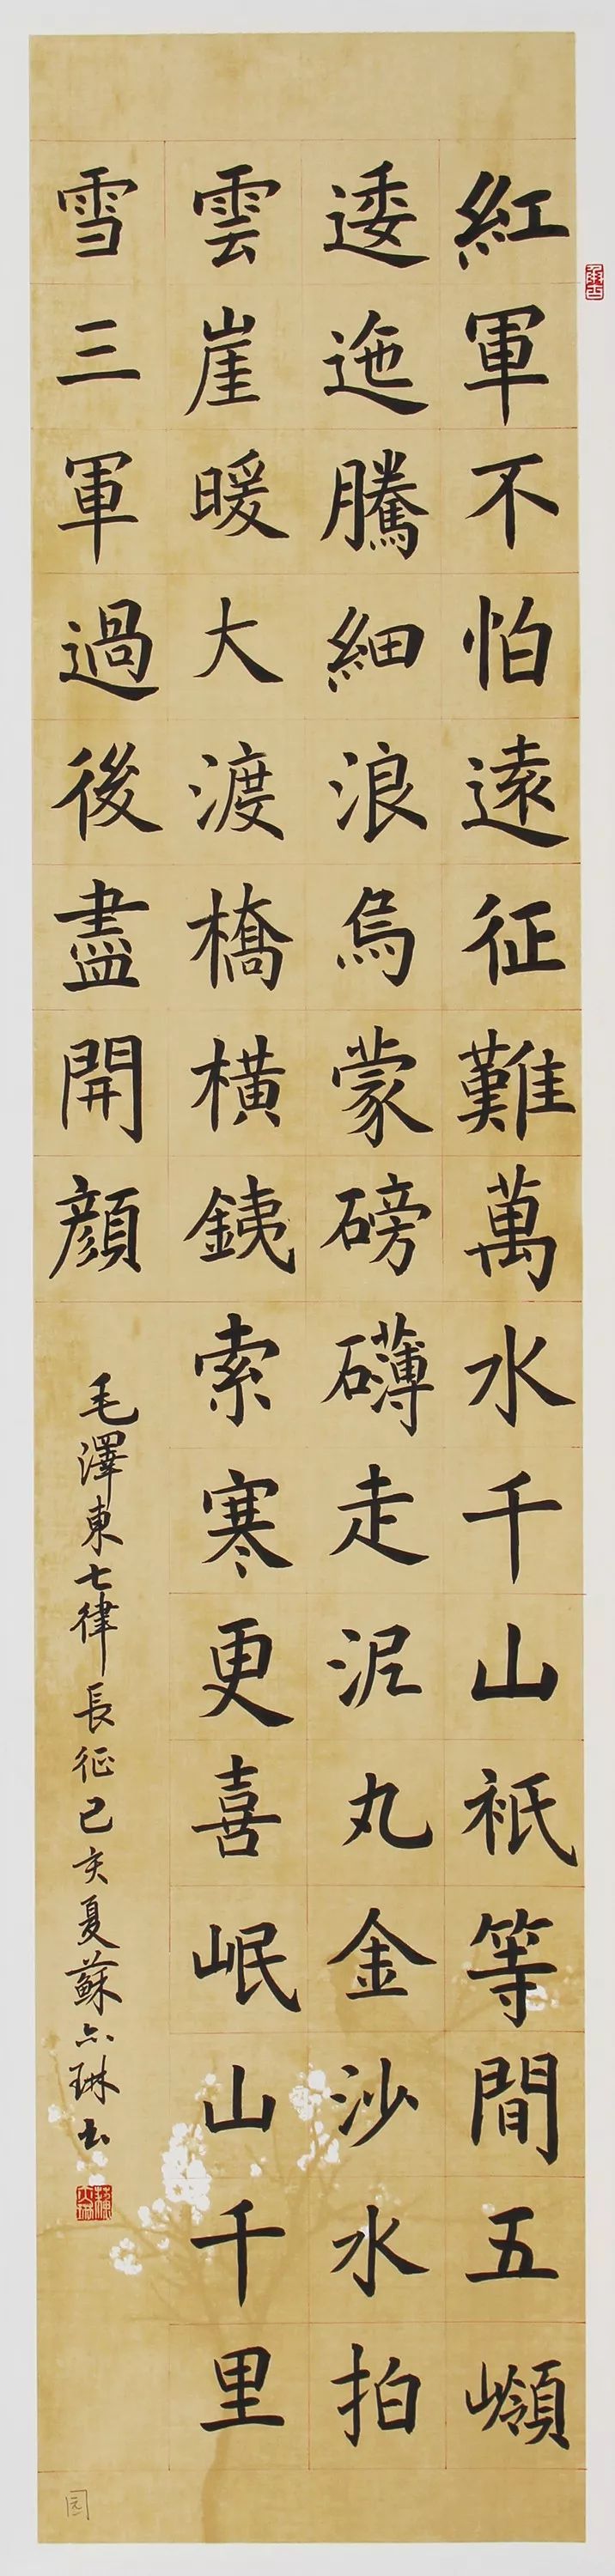 紅軍不怕遠征難萬水千山祇等閒五嶺
逶迤騰細浪烏蒙磅礴走泥丸金沙水拍
雲崖暖大渡橋橫銕索寒更喜岷山千里
雪三軍過後盡開顏
毛澤東七律長征己亥夏蘇亦琳书